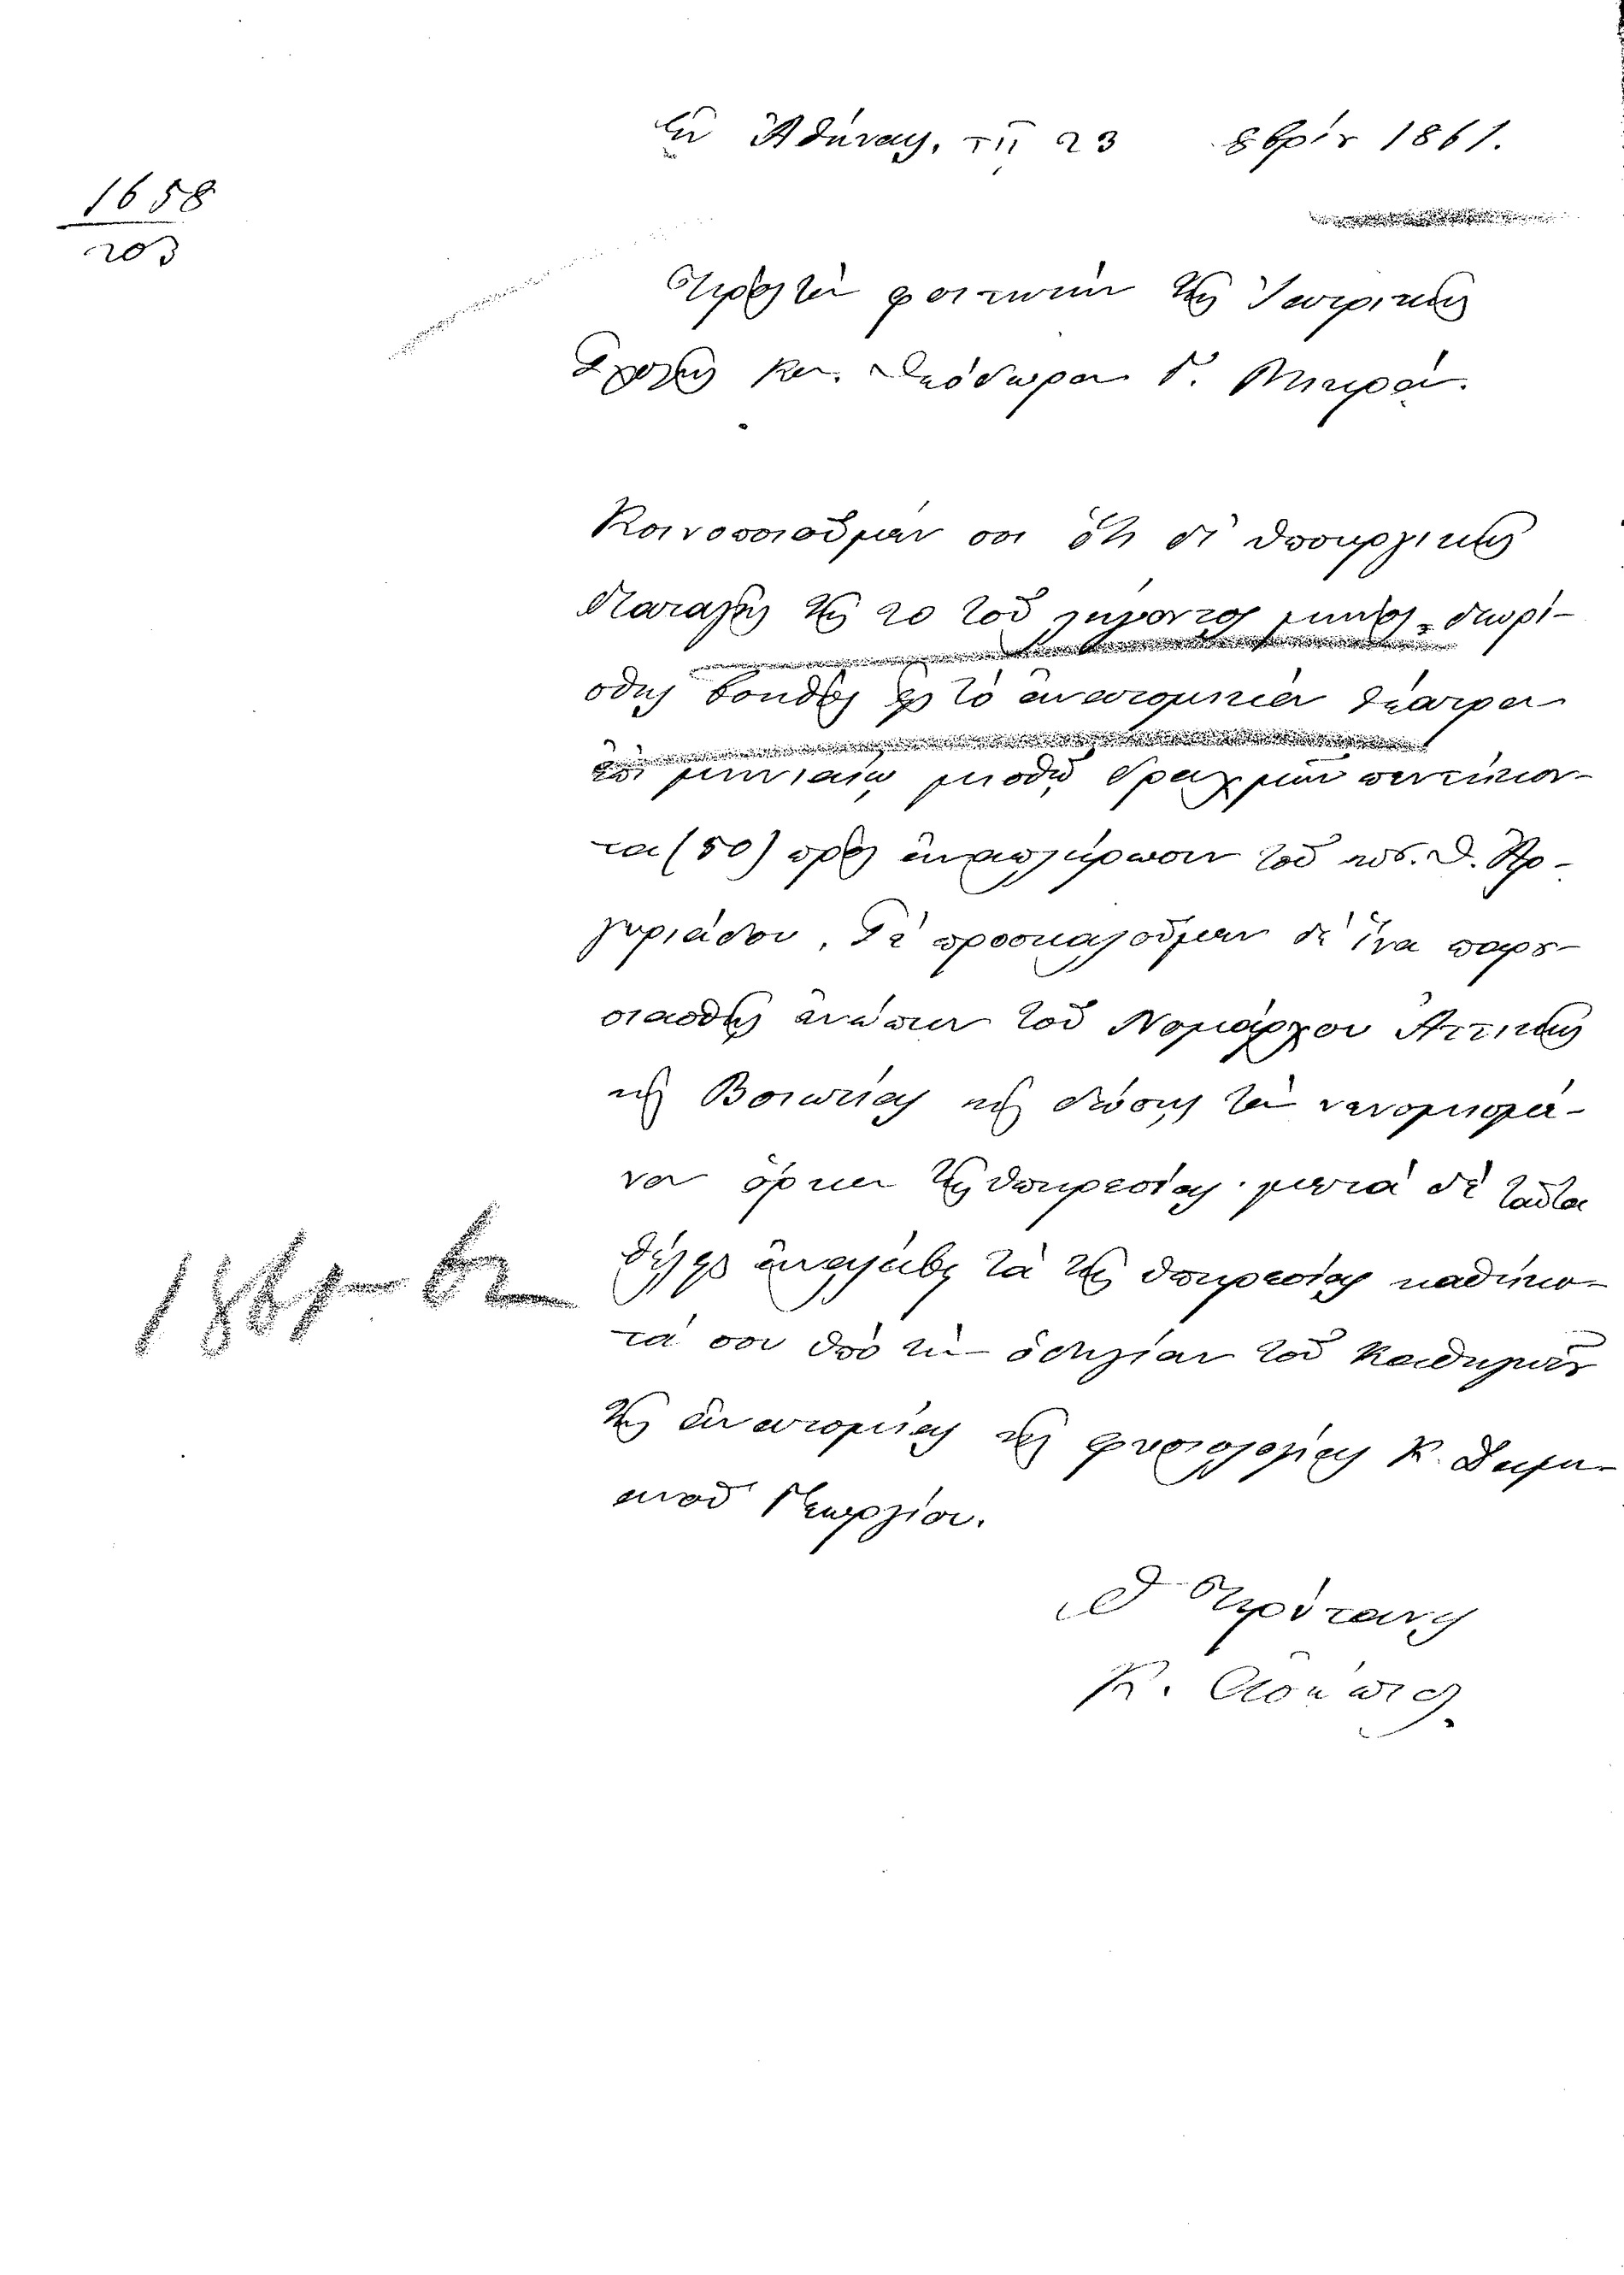 Ἐν Ἀθήναις, τῇ 23 8βρίου 1861.
1658
203
Πρὸς τὸν φοιτητὴν τῆς Ἰατρικῆς
Σχολῆς Κον. Θεόδωρον Γ.
Κοινοποιοῦμέν σοι ὅτι δι' ὑπουργικῆς
διαταγῆς τῆς 20 τοῦ λήγοντος μηνὸς διωρί-
σθης βοηθὸς εἰς τὸ ἀνατομικὸν θέατρον
ἐπὶ μηνιαίῳ μισθῷ δραχμῶν πεντήκον-
τα (50) πρὸς ἀναπλήρωσιν τοῦ κυρ. Θ. Ἀρ-
γυριάδου. Σὲ προσκαλοῦμεν δὲ ἵνα παρου-
σιασθῇς ἐνώπιον τοῦ Νομάρχου Ἀττικῆς
καὶ Βοιωτίας καὶ δώσῃς τὸν νενομισμέ-
νον ὅρκον τῆς ὑπηρεσίας· μετὰ δὲ ταῦτα
θέλεις ἀναλάβῃ τὰ τῆς ὑπηρεσίας καθήκον-
τά σου ὑπὸ τὴν ὁδηγίαν τοῦ Καθηγητοῦ
1861-62
τῆς ἀνατομίας καὶ φυσιολογίας Κ. Δαμια-
νοῦ Γεωργίου.
Ὁ Πρύτανις
Κ. Ἀσώπιος.